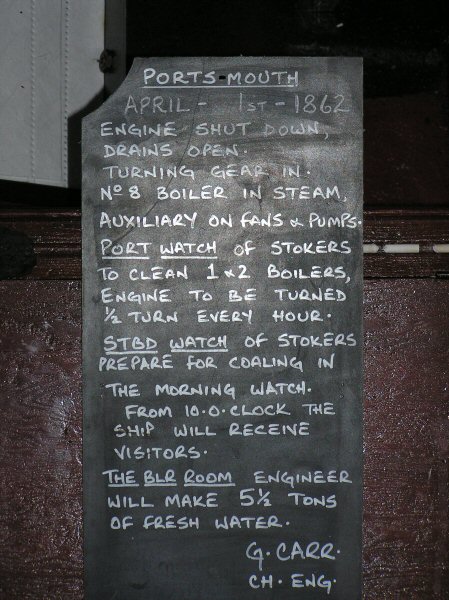 PORTS-MOUTH
APRIL - 1ST - 1862
ENGINE SHUT DOWN,
DRAINS OPEN.
TURNING GEAR IN.
Nº 8 BOILER IN STEAM,
AUXILIARY ON FANS & PUMPS.
PORT WATCH OF STOKERS
TO CLEAN 1 & 2 BOILERS,
ENGINE TO BE TURNED
½ TURN EVERY HOUR.
STBD WATCH OF STOKERS
PREPARE FOR COALING IN
THE MORNING WATCH.
FROM 10.O.CLOCK THE
SHIP WILL RECEIVE
VISITORS.
THE BLR ROOM ENGINEER
WILL MAKE 5½ TONS
OF FRESH WATER.
G. CARR.
CH. ENG.